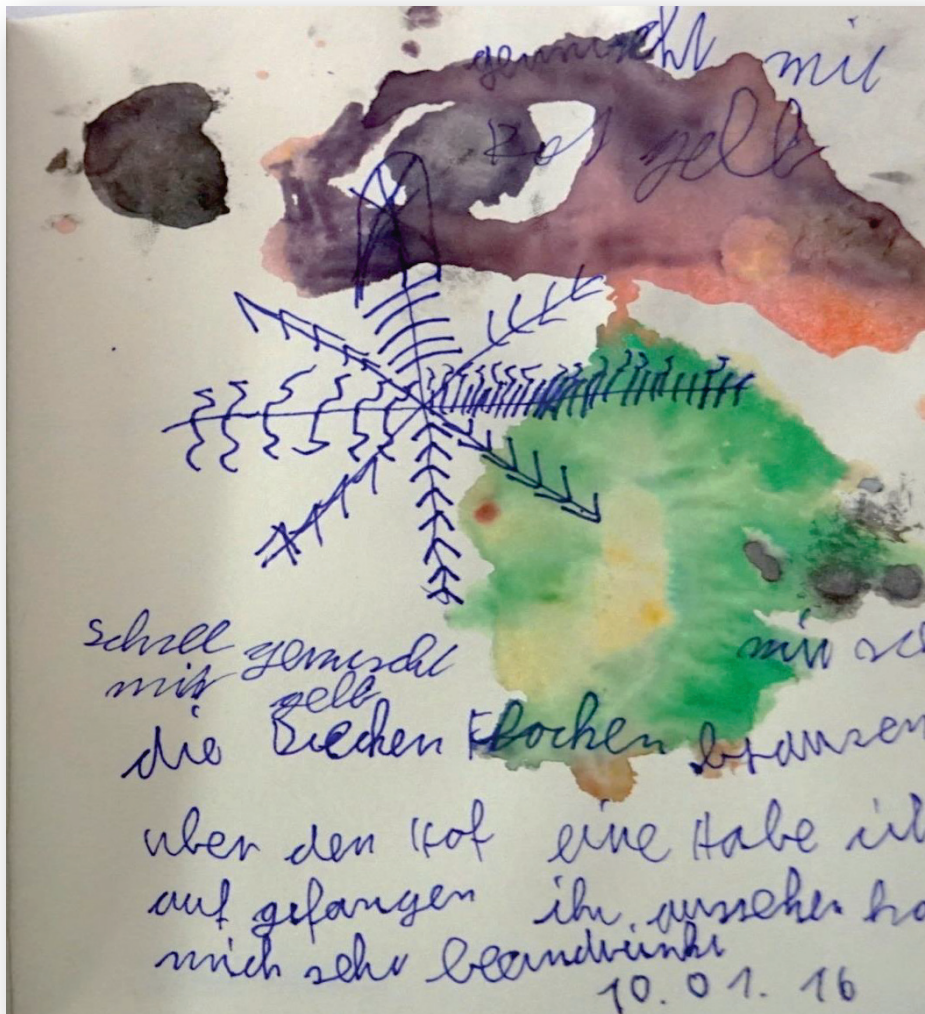 gemischt mit
Rot gelb
schnell gemischt
mit gelb
die Diecken Flocken brausen
über den Hof eine Habe ich
auf gefangen ihr aussehen ha
mich sehr beeindrückt
10.01.16